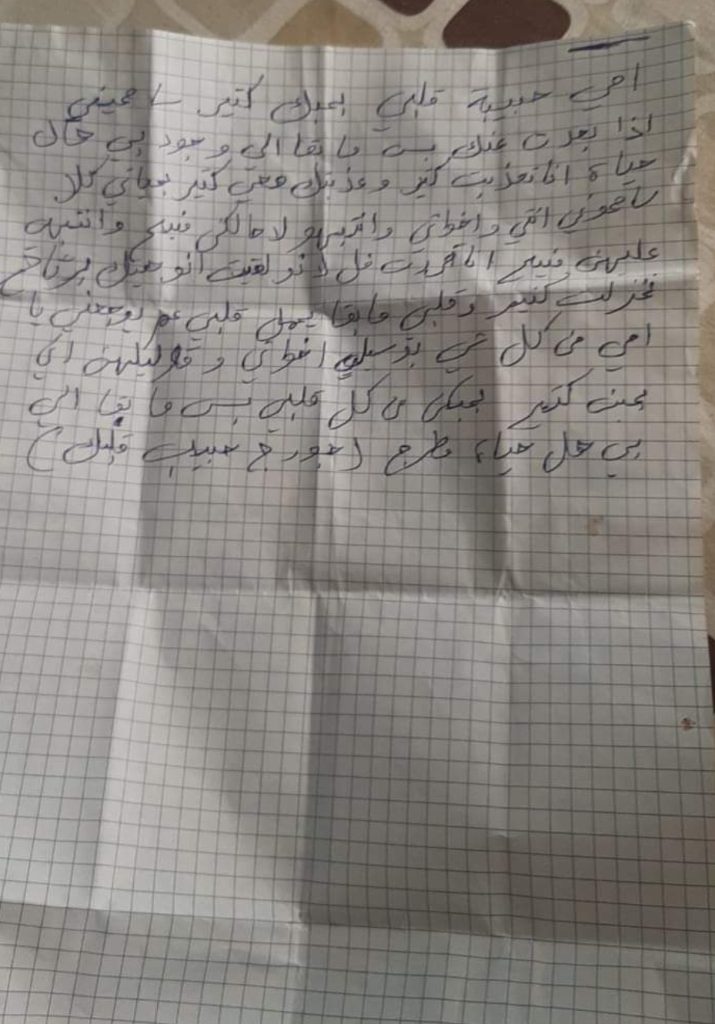 امي حبيبة قلبي بحبك كتير سامحيني
اذا بعدت عنك بس ما بقا الي وجود بي هال
حياة انا تعذبت كتير وعذبتك معي كتير بحياتي كلا
سامحوني انتي واخواتي وانتبهو لا حالكن منيح وانتبه
عليهن منيح انا قررت فل لانو لقيت انو هيك برتاح
نخزلت كتير وقلبي ما بقا يحمل قلبي عم يوجعني يا
امي من كل شي بوسيلي اخواتي وقوليلهن اني
بحبن كتير بحبكن من كل قلبي بس ما بقا الي
بي هل حياة مطرح (جورج حبيب قلبك)